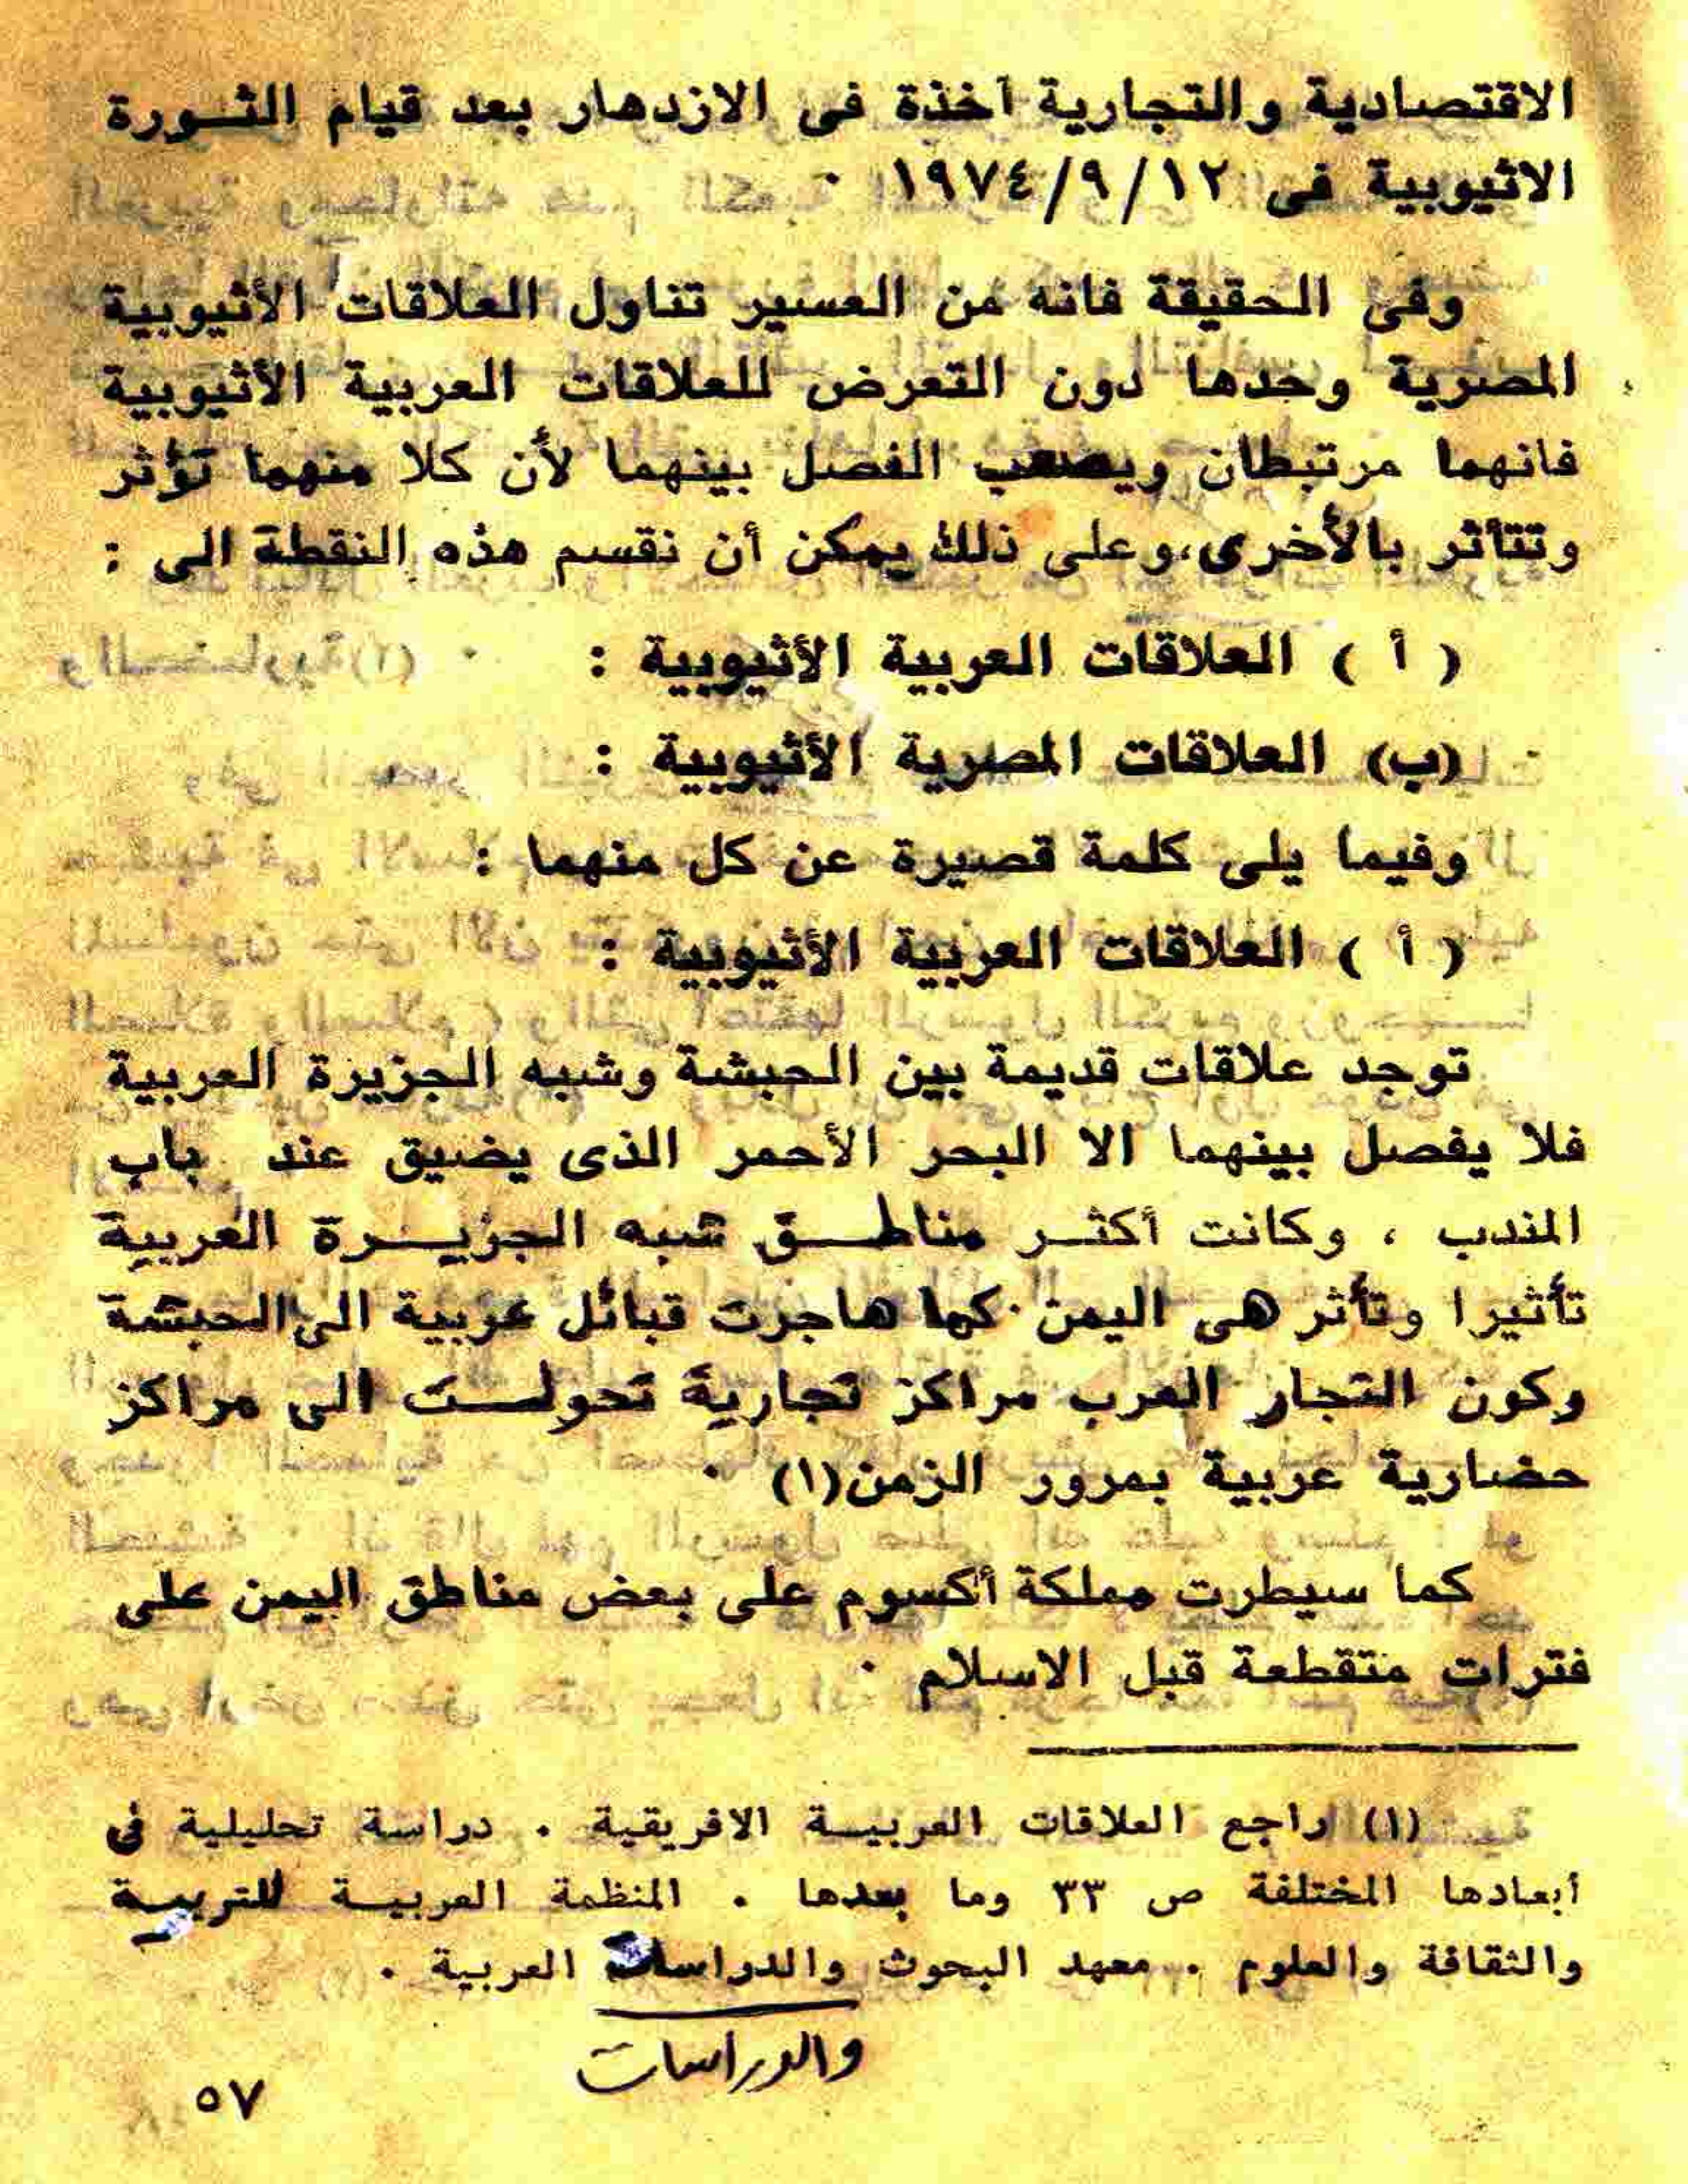 الاقتصادية والتجارية آخذة فى الازدهار بعد قيام الثورة
الاثيوبية فى ١٩٧٤/٩/١٢ ٠
وفى الحقيقة فانه من العسير تناول العلاقات الأثيوبية
المصرية وحدها دون التعرض للعلاقات العربية الأثيوبية
فانهما مرتبطان ويصعب الفصل بينهما لأن كلا منهما تؤثر
وتتأثر بالأخرى، وعلى ذلك يمكن أن نقسم هذه النقطة الى :
( أ ) العلاقات العربية الأثيوبية :
(ب) العلاقات المصرية الأثيوبية :
وفيما يلى كلمة قصيرة عن كل منهما :
( أ ) العلاقات العربية الأثيوبية :
توجد علاقات قديمة بين الحبشة وشبه الجزيرة العربية
فلا يفصل بينهما الا البحر الأحمر الذى يضيق عند باب
المندب ، وكانت أكثر مناطق شبه الجزيرة العربية
تأثيرا وتأثر هى اليمن ٠ كما هاجرت قبائل عربية الى الحبشة
وكون التجار العرب مراكز تجارية تحولت الى مراكز
حضارية عربية بمرور الزمن(١) ٠
كما سيطرت مملكة أكسوم على بعض مناطق اليمن على
فترات متقطعة قبل الاسلام ٠
(١) راجع العلاقات العربية الافريقية . دراسة تحليلية فى
أبعادها المختلفة ص ٣٣ وما بعدها . المنظمة العربية للتربية
والثقافة والعلوم . معهد البحوث والدراسات العربية .
والدراسات
٥٧